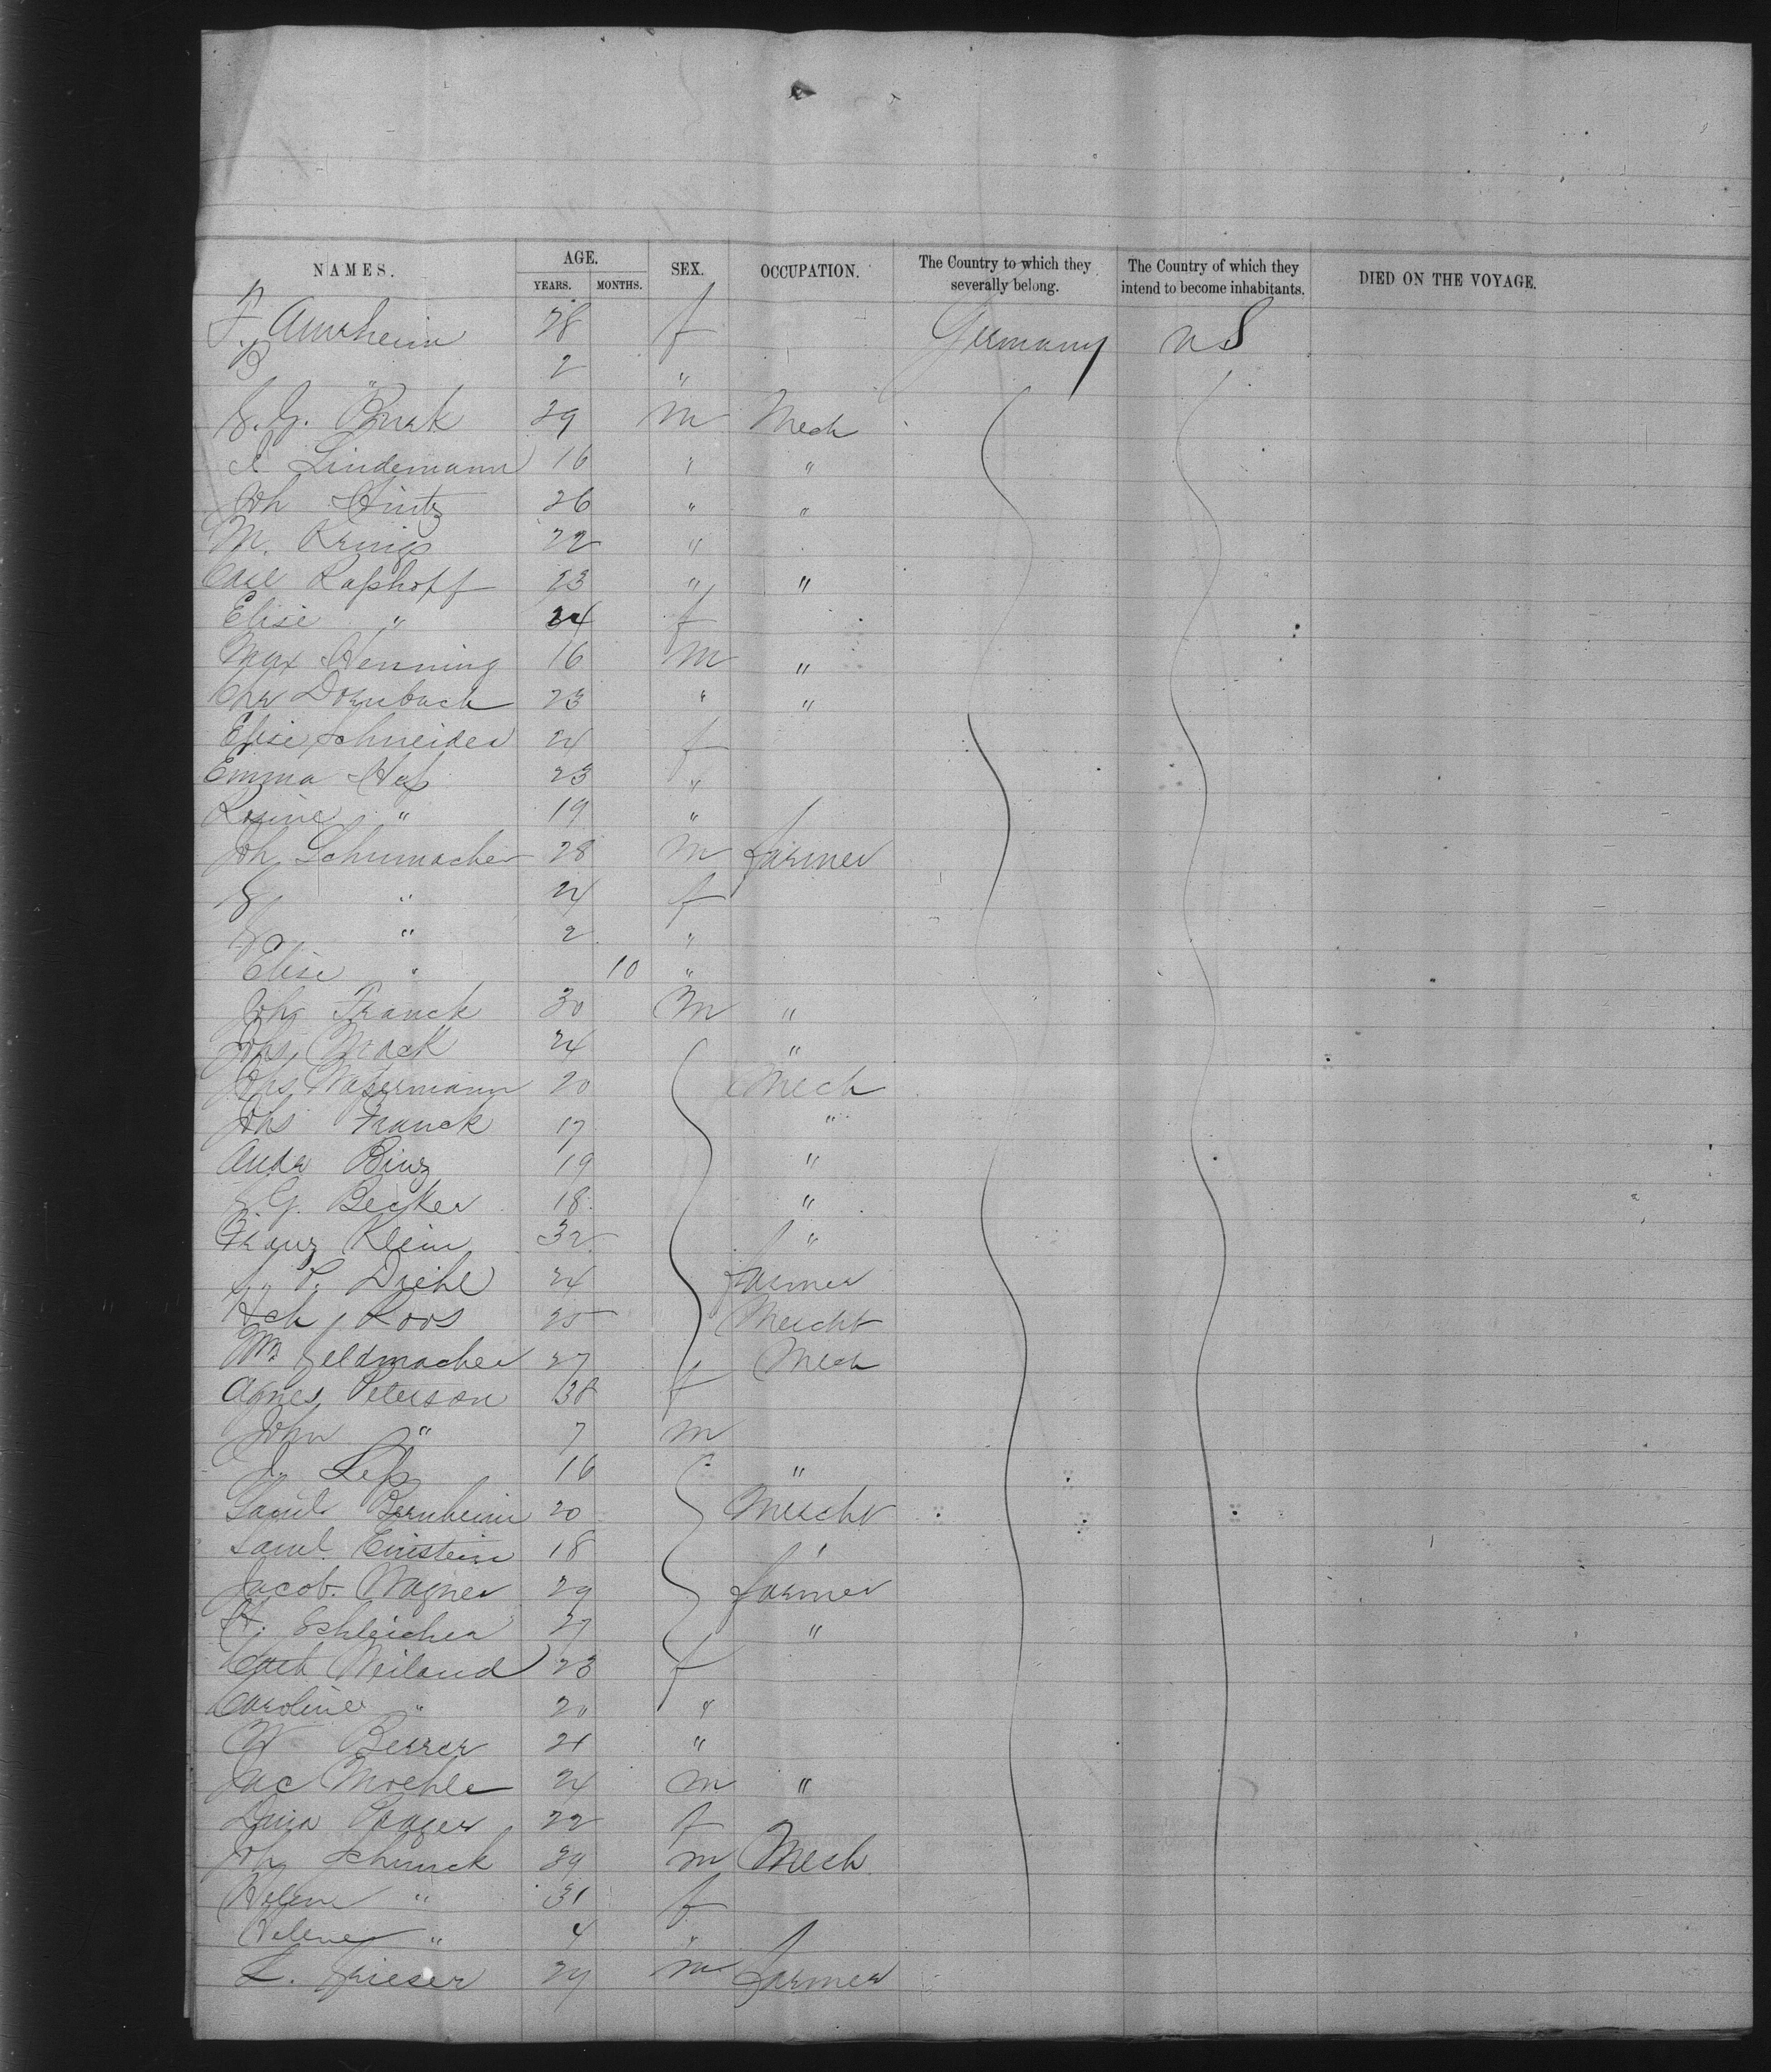 NAMES. AGE. SEX. OCCUPATION. The Country to which they severally belong. The Country of which they intend to become inhabitants. DIED ON THE VOYAGE.
YEARS. MONTHS.
F. 28 f Germany U S
B " 2 "
29 m Mech
Lindemann 16 " "
Joh Hintz 26 " "
M. Krings 22 "
Carl Raßhoff 23 " "
Elise " 24 f
Max Henning 16 m "
Chr Dornbach 23 " "
Elise Schneider 24 f
Emma Heß 23 "
Rosine " 19 "
Joh Schumacher 28 m farmer
" 24 f
" 2 "
Elise " 10 "
Joh Franck 30 m "
Johs Mack 24 "
Johs Waßermann 20 Mech
Johs Franck 17 "
Andr Binz 19 "
G. Becker 18 "
Franz Klein 32 "
P. Diehl 24 farmer
Hch Roos 25 Mercht
Wm Feldmacher 27 Mech
Agnes Peterson 38 f
John " 7 m
J. Leß 16 "
Saml. Bernheim 20 Mercht
Saml. Einstein 18 "
Jacob Wagner 29 farmer
H. Schleicher 27 "
Cath Weiland 23 f
Caroline " 20 "
W Berrer 21 "
Jac Moehle 24 m "
22 f
Joh Schunck 39 m Mech
Helene " 31 f
Helene " 4 "
L. Grieser 29 m farmer